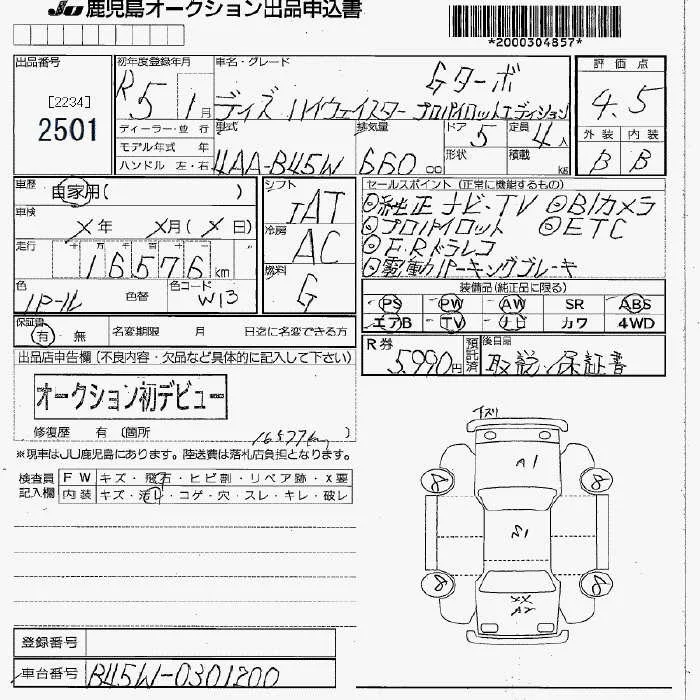 JU 鹿児島オークション出品申込書
*2000304857*
出品番号
[2234]
2501
初年度登録年月
R5 1月
車名・グレード
Gターボ
デイズ ハイウェイスター プロパイロットエディション
評価点
4.5
外装 内装
B B
ディーラー・並 行
モデル年式 年
ハンドル 左・右
型式
4AA-B45W
排気量
660 cc
ドア 5
形状
定員 4人
積載 kg
車歴
自家用( )
車検
メ年 メ月(メ日)
走行
16576km
色
パール
色替
色コード
W13
シフト
IAT
冷房
AC
燃料
G
セールスポイント(正常に機能するもの)
◎純正ナビ・TV ◎Bカメラ
◎プロパイロット ◎ETC
◎F・Rドラレコ
◎電動パーキングブレーキ
装備品(純正品に限る)
PS PW AW SR ABS
エアB TV ナビ カワ 4WD
保証書
有 無
名変期限 月 日迄に名変できる方
R券
5,990円
預託済
後日届
取説・保証書
出品店申告欄(不良内容・欠品など具体的に記入して下さい)
オークション初デビュー
修復歴 有 (箇所 )
16577km
※現車はJU鹿児島にあります。陸送費は落札店負担となります。
検査員
記入欄
FW キズ・飛石・ヒビ割・リペア跡・X要
内装 キズ・汚れ・コゲ・穴・スレ・キレ・破レ
下ズリ
A1
8 8
8 8
XX
A2
登録番号
車台番号 B45W-0301200